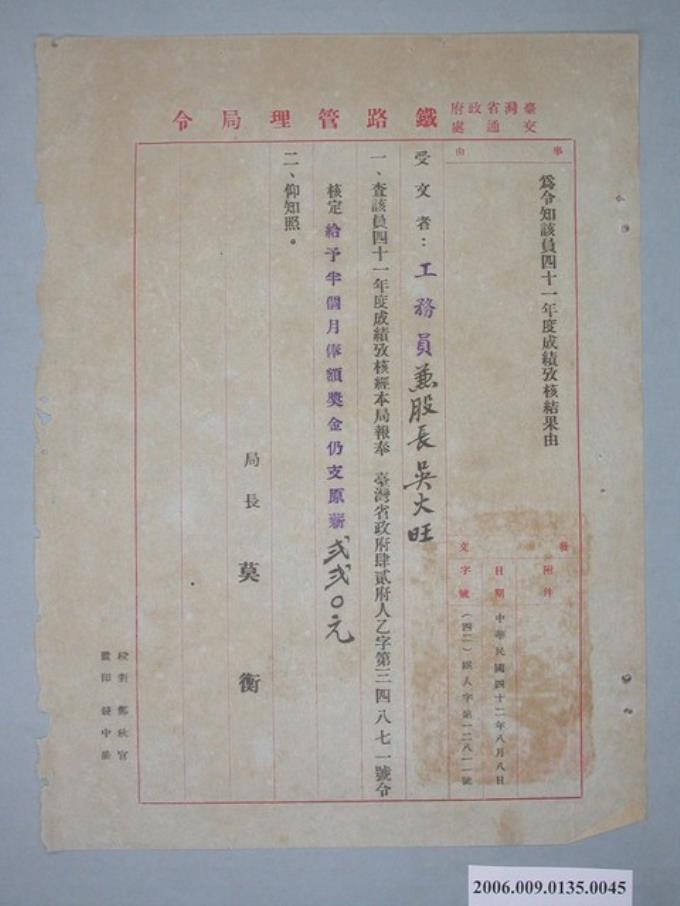 臺灣省政府
交通處
鐵路管理局令
事由
為令知該員四十一年度成績攷核結果由
發文
附件
日期
中華民國四十二年八月八日
字號
(四二)鐵人字第一二八一一號
受文者：工務員兼股長吳火旺
一、查該員四十一年度成績攷核經本局報奉 臺灣省政府肆貳府人乙字第三四八七一號令
核定給予半個月俸額獎金仍支原薪弍弍〇元
二、仰知照。
局長 莫衡
校對 鄭秋官
監印 錢中
2006.009.0135.0045